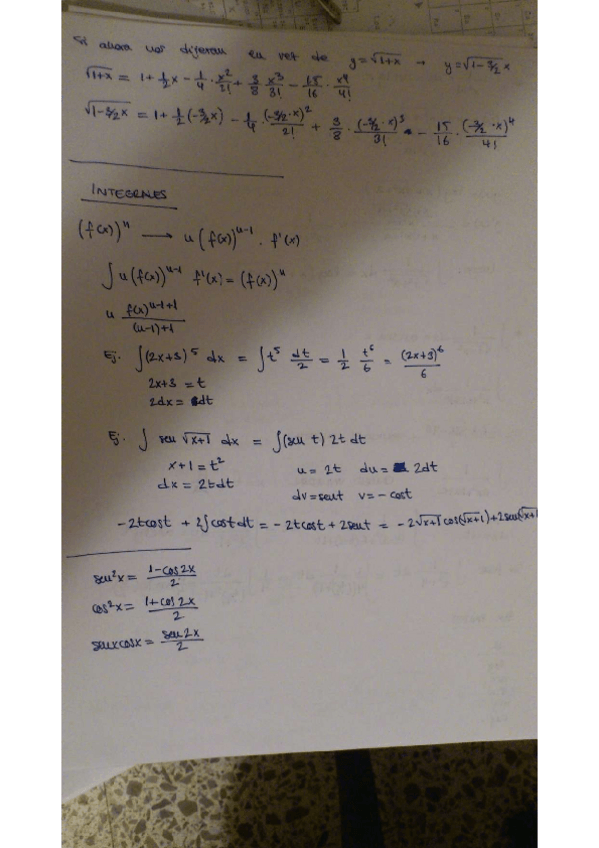 Si ahora nos dijeran en vez de y=√1+x → y=√1-3/2x
√1+x = 1+1/2x - 1/4 · x²/2! + 3/8 x³/3! - 15/16 · x⁴/4!
√1-3/2x = 1+1/2(-3/2x) - 1/4 · (-3/2·x)²/2! + 3/8 · (-3/2·x)³/3! - 15/16 · (-3/2·x)⁴/4!
INTEGRALES
(f(x))ⁿ → n(f(x))ⁿ⁻¹ · f'(x)
∫n(f(x))ⁿ⁻¹ f'(x) = (f(x))ⁿ
n f(x)ⁿ⁻¹⁺¹/(n-1)+1
Ej. ∫(2x+3)⁵ dx = ∫t⁵ dt/2 = 1/2 t⁶/6 = (2x+3)⁶/6
2x+3 = t
2dx = dt
Ej. ∫ sen √x+1 dx = ∫(sen t) 2t dt
x+1 = t² u = 2t du = 2dt
dx = 2tdt dv = sent v = -cost
-2tcost + 2∫costdt = -2tcost + 2sent = -2√x+1 cos(√x+1)+2sen(√x+1
sen²x = 1-cos2x/2
cos²x = 1+cos2x/2
senxcosx = sen2x/2